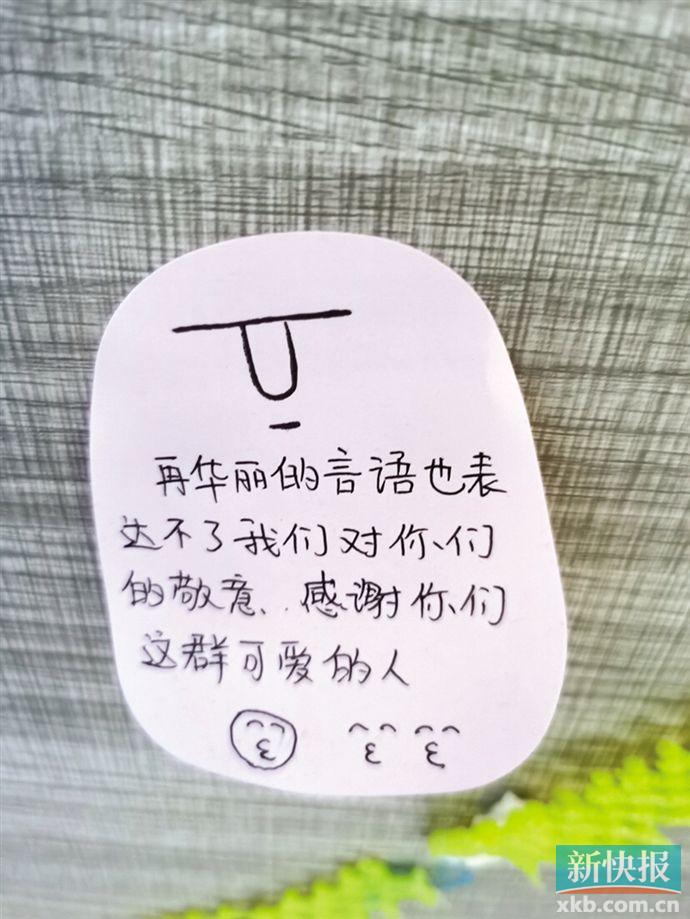 再华丽的言语也表
达不了我们对你、们
的敬意、感谢你、们
这群可爱的人
新快报
xkb.com.cn